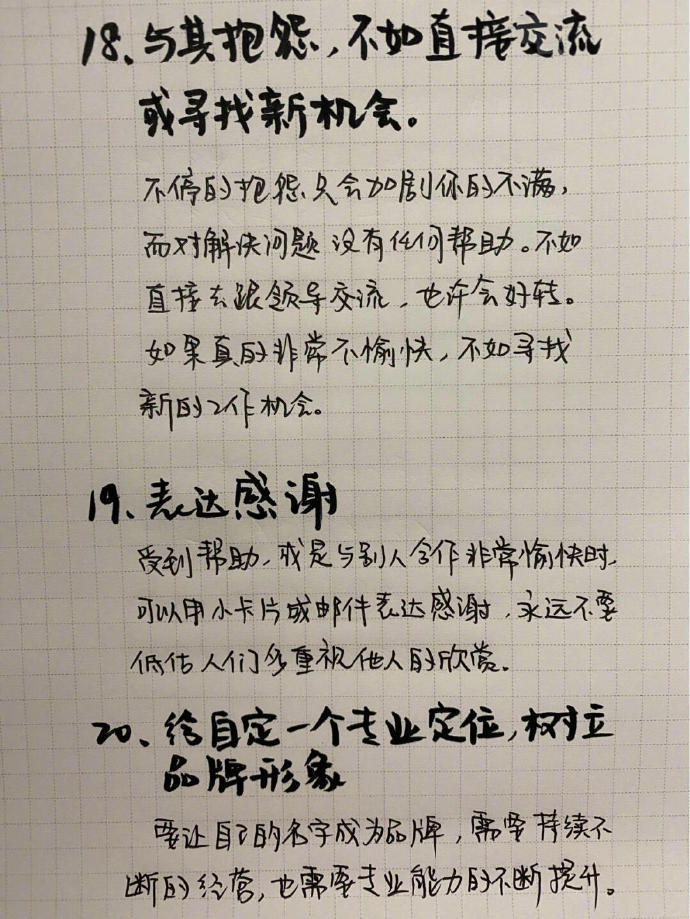 18、与其抱怨，不如直接交流
或寻找新机会。
不停的抱怨只会加剧你的不满，
而对解决问题没有任何帮助。不如
直接去跟领导交流，也许会好转。
如果真的非常不愉快，不如寻找
新的工作机会。
19、表达感谢
受到帮助，或是与别人合作非常愉快时，
可以用小卡片或邮件表达感谢，永远不要
低估人们多重视他人的欣赏。
20、给自定一个专业定位，树立
品牌形象
要让自己的名字成为品牌，需要持续不
断的经营，也需要专业能力的不断提升。